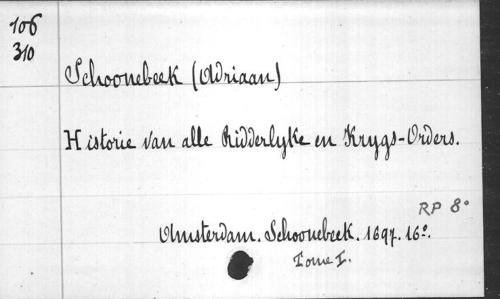 106
310
Schoonebeek (Adriaan)
Historie van alle Ridderlyke en Krygs-Orders.
RP 8°
Amsterdam. Schoonebeek. 1697. 16°.
Tome I.